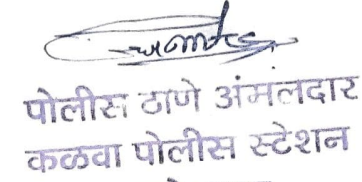 पोलीस ठाणे अंमलदार
कळवा पोलीस स्टेशन